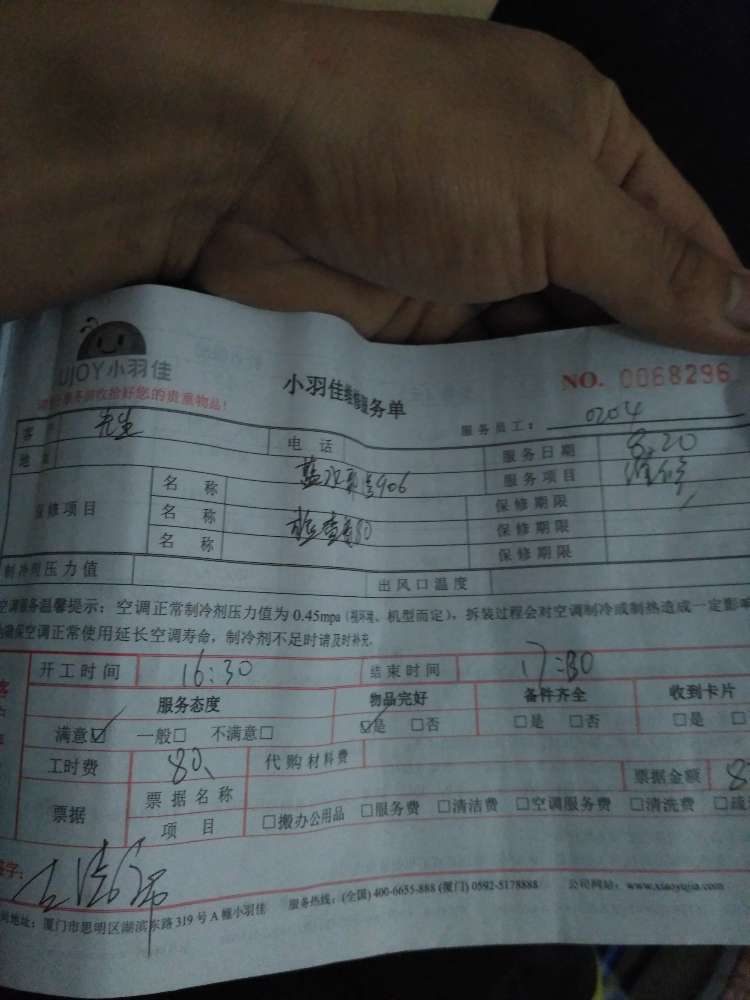 UJOY小羽佳
收拾好您的贵重物品!
小羽佳维修服务单
NO. 0068296
服务员工: 0204
客 先生 电 话 服务日期 8.20
地 服务项目 维修
保修项目 名 称 906 保修期限
名 称 检查费80 保修期限
名 称 保修期限
制冷剂压力值 出风口温度
空调服务温馨提示：空调正常制冷剂压力值为0.45mpa（视环境、机型而定），拆装过程会对空调制冷或制热造成一定影响
为确保空调正常使用延长空调寿命，制冷剂不足时请及时补充.
开工时间 16:30 结束时间 17:30
服务态度 物品完好 备件齐全 收到卡片
满意☑ 一般□ 不满意□ ☑是 □否 □是 □否 □是 □
工时费 80、 代购材料费
票据 票据名称 票据金额 8
项 目 □搬办公用品 □服务费 □清洁费 □空调服务费 □清洗费 □疏
签字:
地址：厦门市思明区湖滨东路319号A幢小羽佳 服务热线：(全国) 400-6655-888 (厦门) 0592-5178888 公司网站：www.xiaoyujia.com